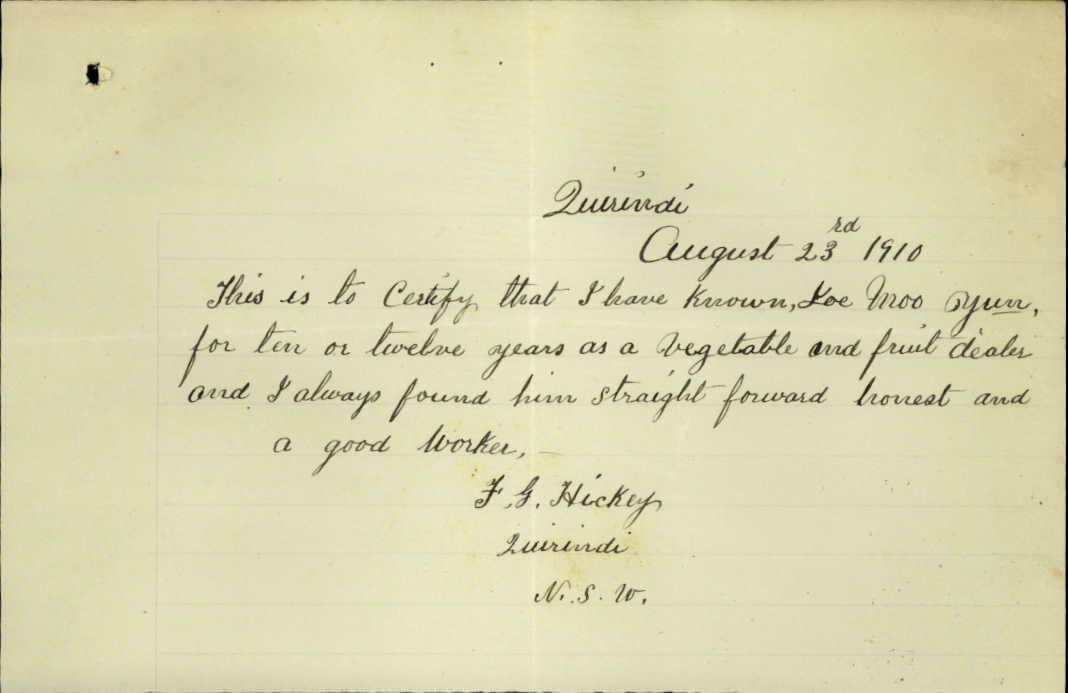 Quirindi
August 23rd 1910
This is to Certify that I have Known, Loe Moo Yun,
for ten or twelve years as a Vegetable and fruit dealer
and I always found him straight forward honest and
a good Worker. –
F. G. Hickey
Quirindi
N. S. W.